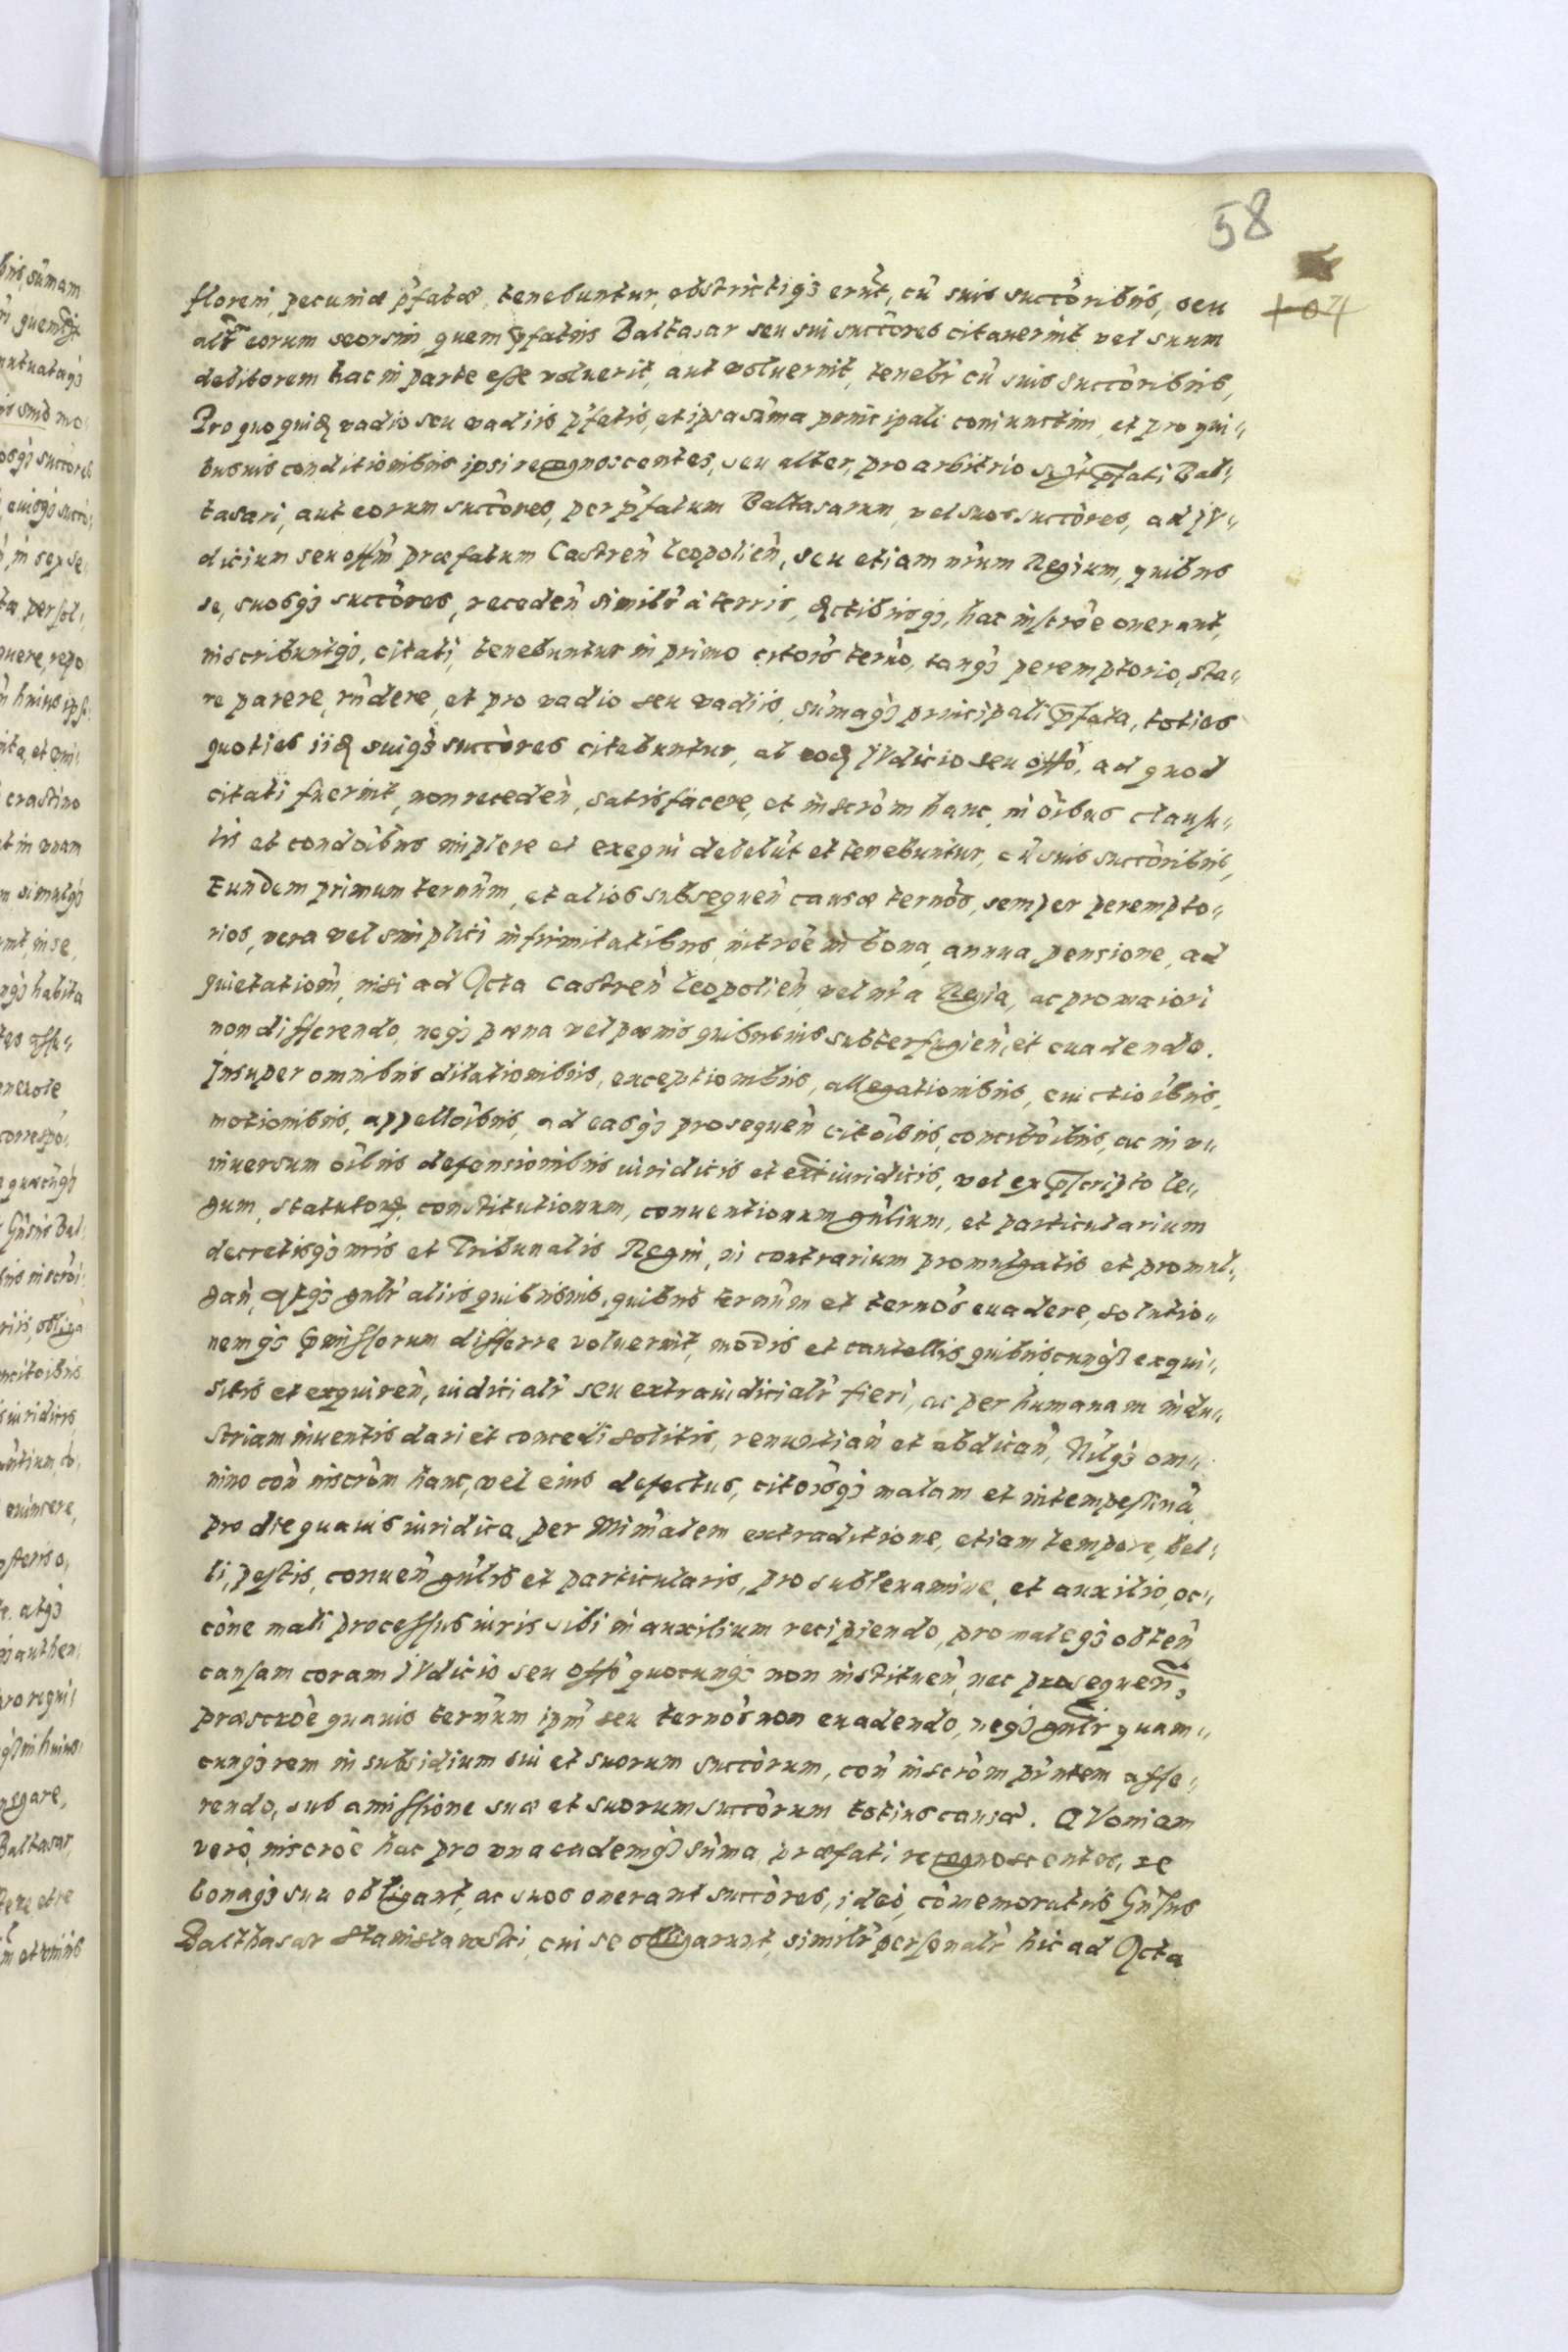 58
104
floreni, pecuniæ p̃fatæ, tenebuntur, obstrictiq3 erũt, cũ suis succ̃oribus, seu
alt̃r eorum seorsim, quem p̃fatus Baltasar seu sui succ̃ores citauerint vel suum
debitorem hac in parte esse voluerit, aut voluerint, tenebr̃ cũ suis succ̃oribus,
Pro quo quid vadio seu vadiis p̃fatis, et ipsa sum̃a principali coniunctim, et pro qui„
busuis conditionibus ipsi recognoscentes, seu alter, pro arbitrio p̃fati Bal„
tasari, aut eorum succ̃ores, per p̃fatum Baltasarum, vel suos succ̃ores, ad JV„
dicium seu offm̃ præfatum Castreñ Leopolieñ, seu etiam nr̃um Regium, quibus
se, suosq3 succ̃ores, recedeñ similr̃ à terris, actibusq3, hac inscrõe onerant,
inscribuntq3, citati, tenebuntur in primo citõis term̃o, tanq3 peremptorio, sta„
re parere, rñdere, et pro vadio seu vadiis, sum̃aq3 principali p̃fata, toties
quoties iid suiq3 succ̃ores citabuntur, ab eod JVdicio seu offo, ad quod
citati fuerint, non recedeñ, satisfacere, et inscrõm hanc, in õibus clausu„
lis et condõibus implere et exequi debebũt et tenebuntur, cũ suis succ̃oribus,
Eundem primum termĩnm, et alios subsequeñ causæ termõs, semper perempto„
rios, vera vel simplici infirmitatibus, intrõe in bona, annua pensione, ad
quietatiom̃, nisi ad Acta Castreñ Leopolieñ, vel nr̃a Regia, ac pro maiori
non differendo, neq3 pæna vel pænis quibusuis subterfugieñ, et euadendo.
Insuper omnibus dilationibus, exceptionibus, allegationibus, euictiõibus,
motionibus, appellõibus, ad easq3 prosequeñ citõibus, concitõibus, ac in v„
niuersum õibus defensionibus iuridicis et ext̃iuridicis, vel ex p̃scripto le„
gum, statutor, constitutionum, conuentionum gñlium, et particularium
decretisq3 nr̃is et Tribunalis Regni, in contrarium promulgatis et promul„
gañ, atq3 gnlr̃ aliis quibusuis, quibus term̃um et termõs euadere, solutio„
nemq3 p̃missorum differre voluerint, modis et cautellis quibuscunq3 exqui„
sitis et exquireñ, iudicialr̃ seu extraiudicialr̃ fieri, ac per humanam indu„
striam inuentis dari et concedi solitis, renuntiañ et abdicañ, Nilq3 om„
nino coñ inscrõm hanc, vel eius defectus, citõisq3 malam et intempestiuã
pro die quauis iuridica, per Minr̃alem extraditione, etiam tempore, bel„
li, pestis, conueñ gñlis et particularis, pro subleuamine, et auxilio, oc„
cõne mali processus iuris sibi in auxilium recipiendo, pro maleq3 obteñ
causam coram JVdicio seu offo quocunq3 non instituen̄, nec prosequeñ,
præscrõe quauis term̃um ipm̃ seu termõs non euadendo, neq3 gnlr̃ quam„
cunq3 rem in subsidium sui et suorum succ̃orum, coñ inscrõm pñtem affe„
rendo, sub amissione suæ et suorum succ̃orum totius causæ. QVoniam
verò, inscrõe hac pro vna eademq3 sum̃a, præfati recognoscentes, se
bonaq3 sua obligant, ac suos onerant succ̃ores, ideò, com̃emoratus Gñsus
Balthasar Stanisławski, cui se obligarunt, similr̃ personalr̃ hic ad Acta